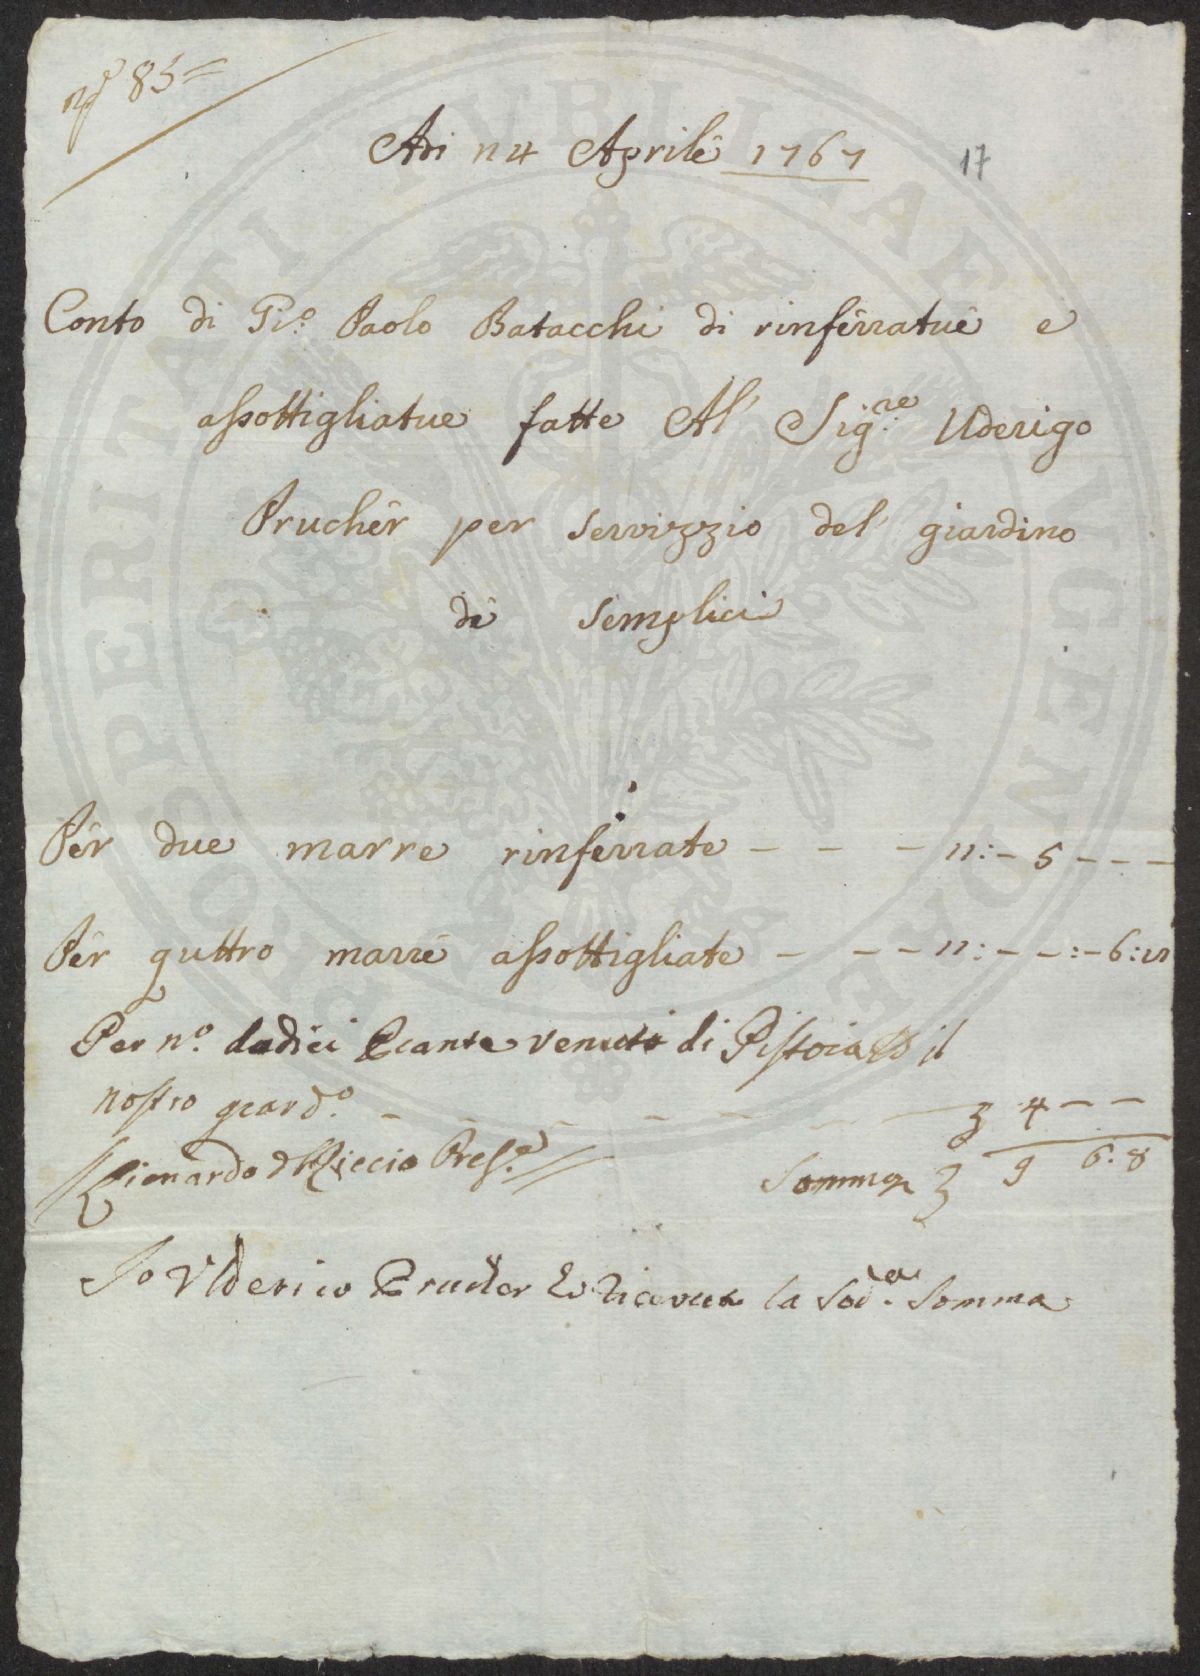 nº 85=
Adi n 4 Aprile 1767
17
Conto di Gio. Paolo Batacchi di rinferratue e
assottigliatue fatte Al Sig.re Uderigo
Prucher per servizzio del giardino
de Semplici
Per due marre rinferrate - - - n: - 5 - - -
Per quttro marre assottigliate - - - n: - - : - 6:
Per nº. dodici Piante venute di Pistoia il
nostro giard.º - - - - - - 3 4 - -
Lionardo Riccio Pres.e
Somma 3 9 6. 8
Io Vlderico Prucher ho riceuta la Sod.a Somma
PROSPERITATI PVBLICAE AVGENDAE